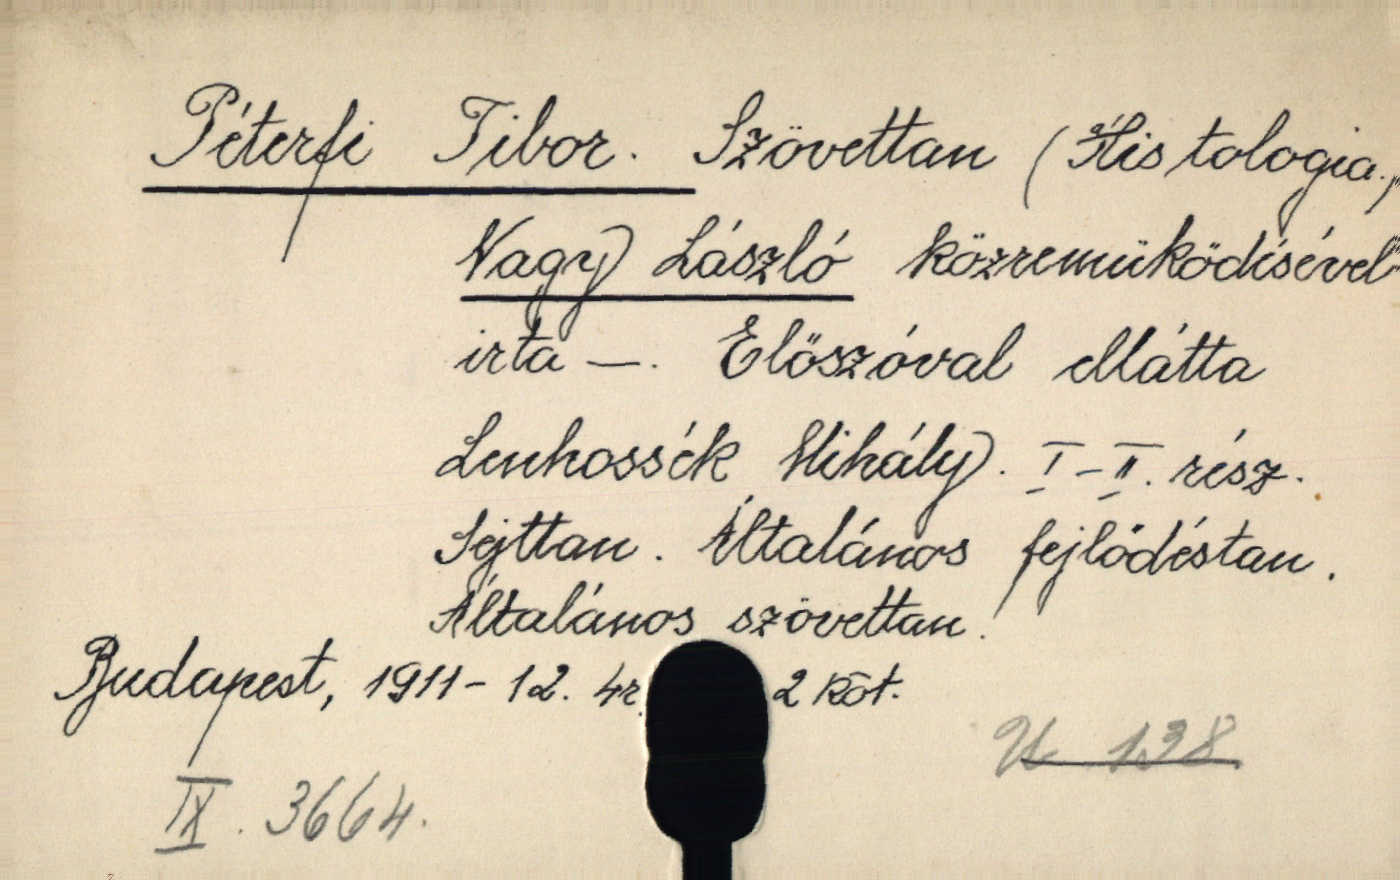 Péterfi Tibor. Szövettan (Histologia.)
Nagy László közremüködésével
irta —. Elöszóval ellátta
Lenhossék Mihály. I-II. rész.
Sejttan. Általános fejlödéstan.
Általános szövettan.
Budapest, 1911-12. 4r. 2 köt.
U 138
IX. 3664.